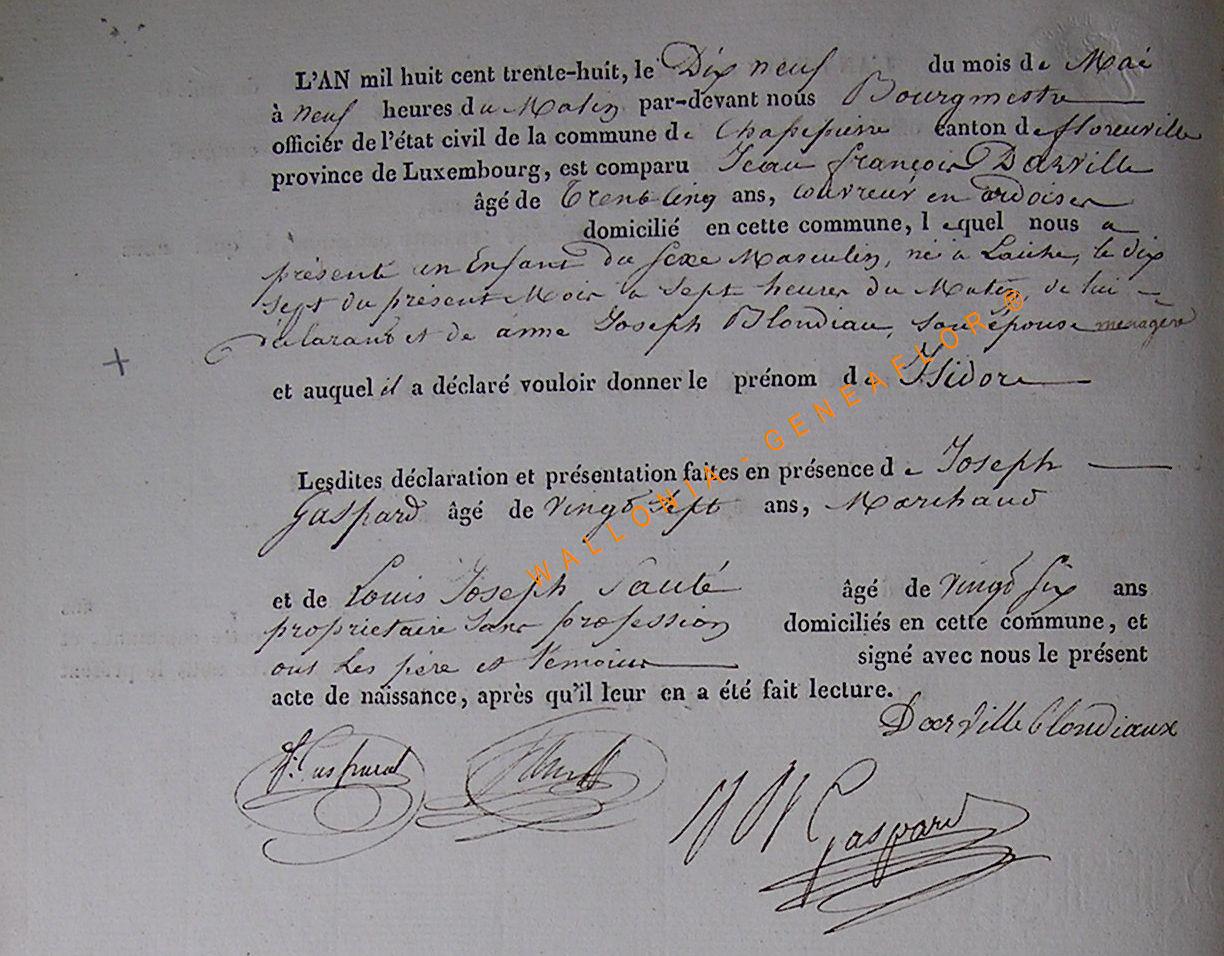 L'AN mil huit cent trente-huit, le Dix neuf du mois de Mai
à neuf heures du Matin par-devant nous Bourgmestre
officiér de l'état civil de la commune de Chassepierre canton de florenville
province de Luxembourg, est comparu Jean françois Darville
âgé de Trent Cinq ans, couvreur en ardoises
domicilié en cette commune, lequel nous a
présenté un Enfant du sexe Masculin, né à Laiche, le dix
sept du présent Mois a sept heures du Matin de lui
déclarant et de anne Joseph Blondiau, son épouse menagere
et auquel il a déclaré vouloir donner le prénom de Isidore
Lesdites déclaration et présentation faites en présence de Joseph
Gaspard âgé de vingt Sept ans, Marchand
et de Louis Joseph âgé de vingt Six ans
propriétaire sans profession domiciliés en cette commune, et
ont Les père et Temoins signé avec nous le présent
acte de naissance, après qu'il leur en a été fait lecture.
Darville blondiaux
J. Gaspard
Gaspard
WALLONIA - GENEAFLOR ®